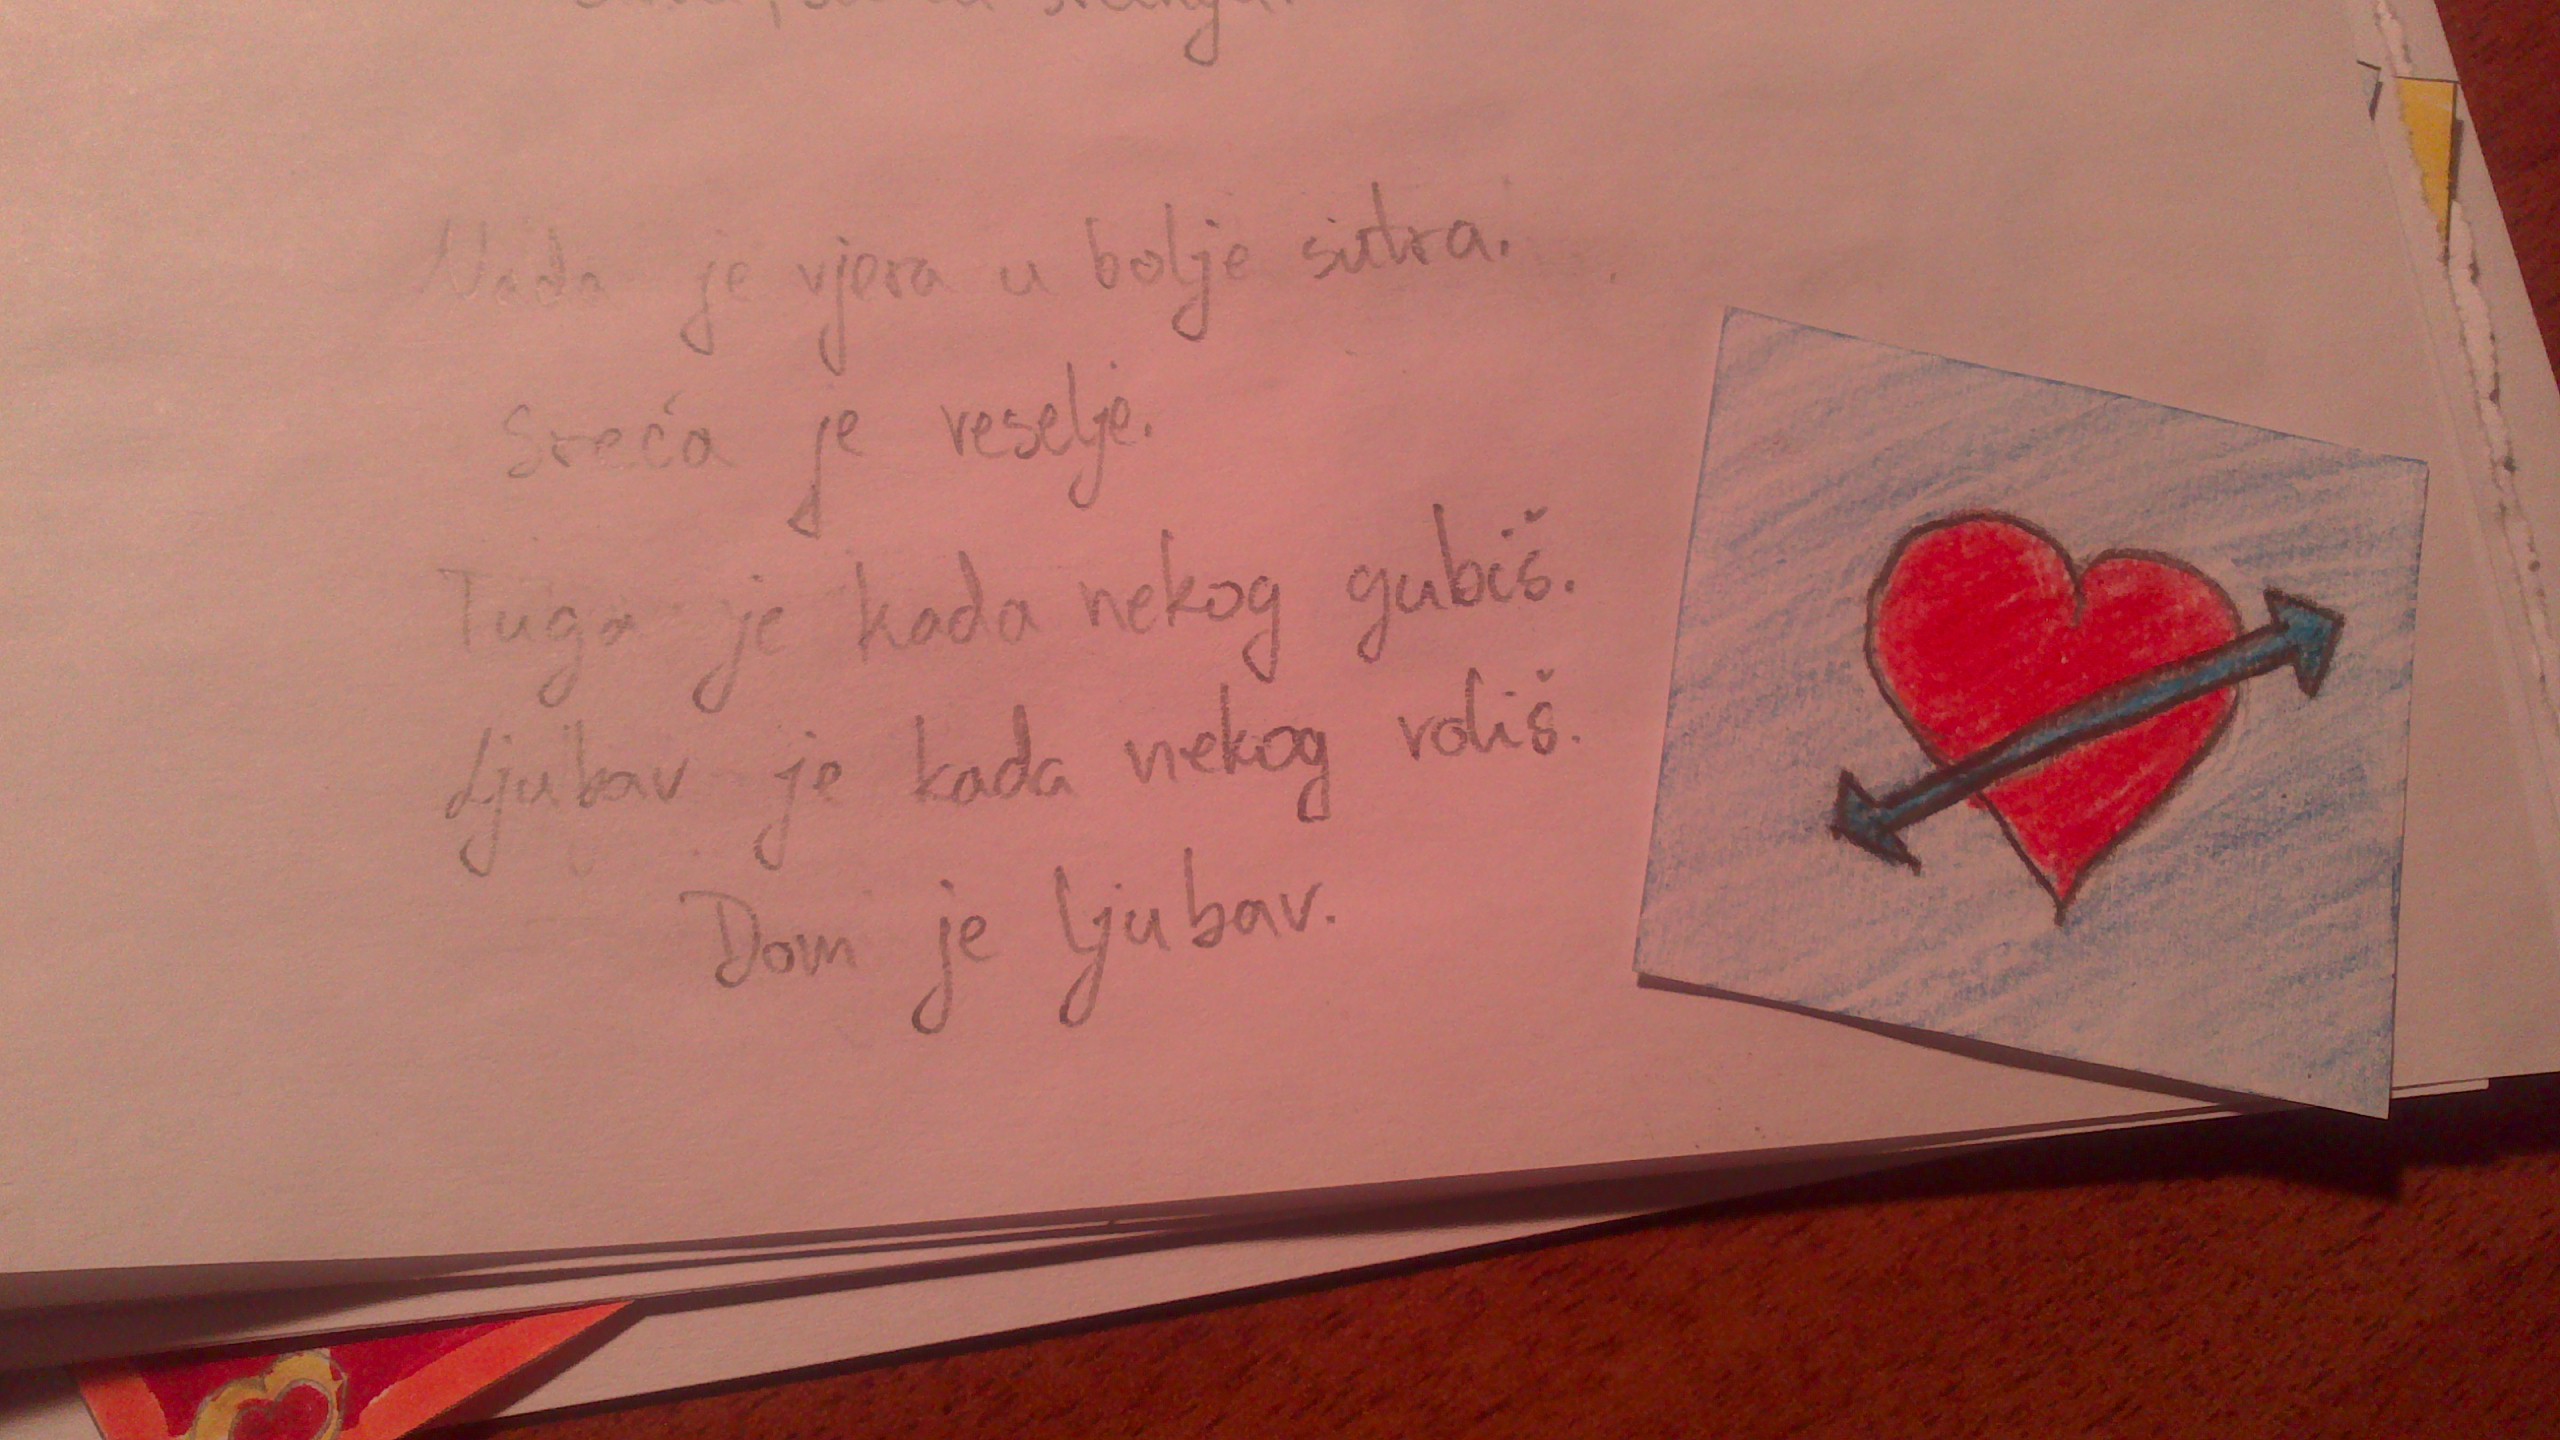 Nada je vjera u bolje sutra.
Sreća je veselje.
Tuga je kada nekog gubiš.
Ljubav je kada nekog voliš.
Dom je ljubav.